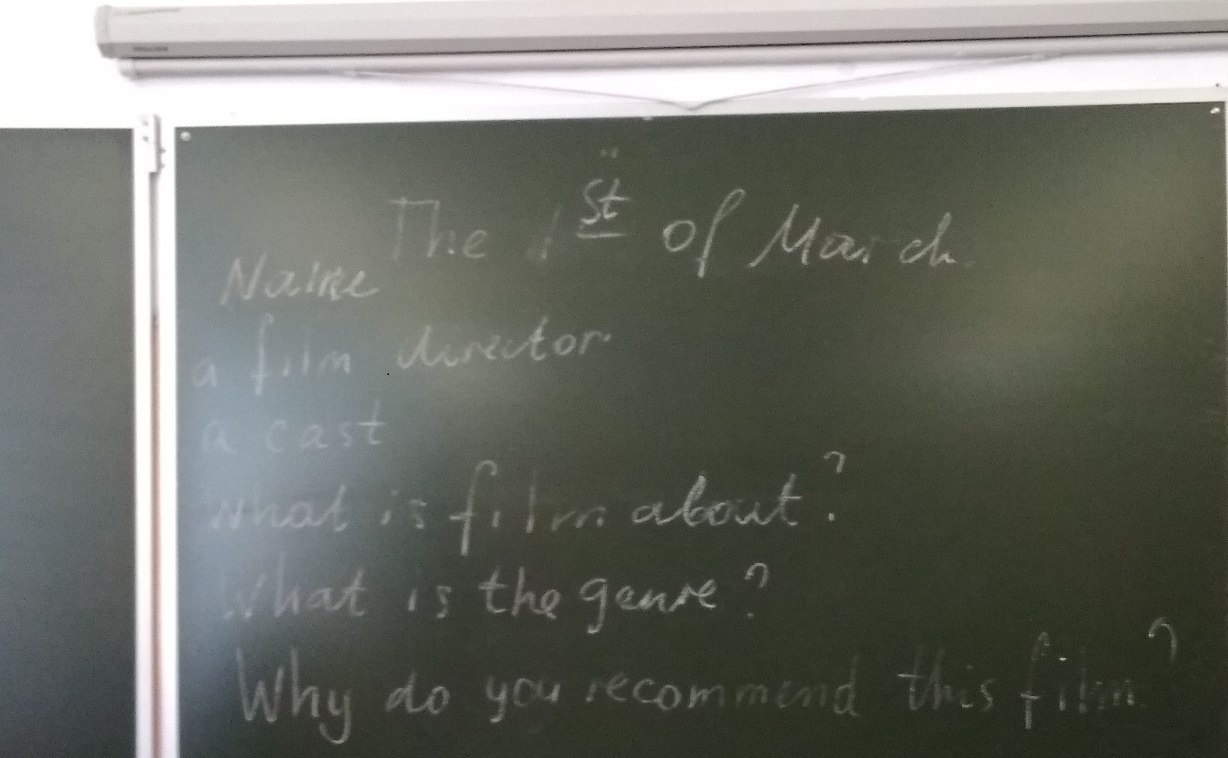 The 1st of March
Name
a film director
a cast
What is film about?
What is the genre?
Why do you recommend this film?